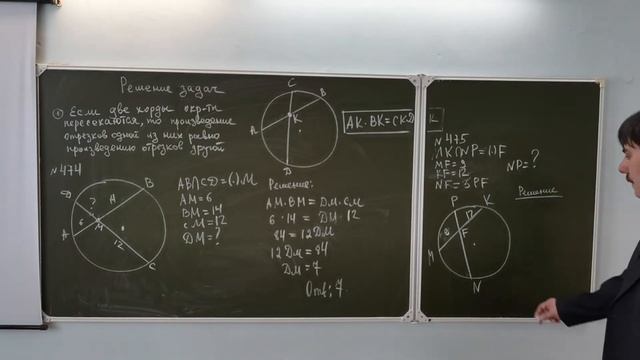 Решение задач
① Если две хорды окр-ти
пересекаются, то произведение
отрезков одной из них равно
произведению отрезков другой
C
B
A
K
D
AK·BK=CK·D K
N 474
D
?
14
B
6
M
A
12
C
AB∩CD=(·)M
AM=6
BM=14
CM=12
DM=?
Решение:
AM·BM=DM·CM
6·14=DM·12
84=12DM
12DM=84
DM=7
Отв: 7.
N 475
MK∩NP=(·)F
MF=9
KF=12
NF=3PF
NP=?
Решение
P
K
12
F
M
N